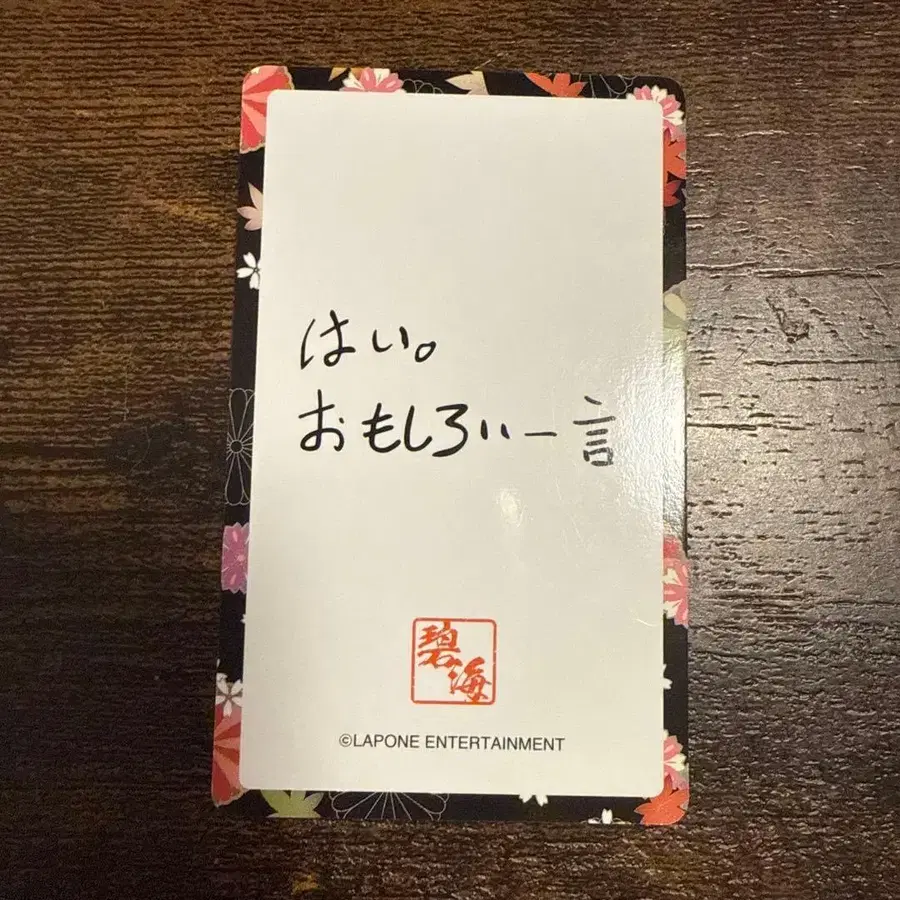 はい。
おもしろい一言
碧海
©LAPONE ENTERTAINMENT